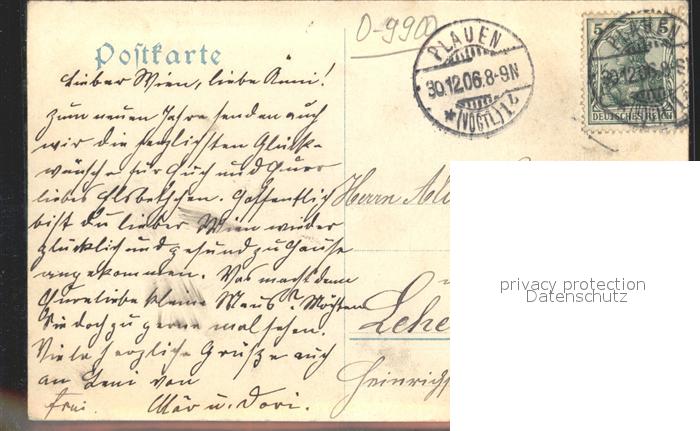 O-9900
Postkarte
PLAUEN
30.12.06.8-9N
(VOGTL) 1 z
5 5
PLAUEN
30.12.06.8-9N
(VOGTL)
DEUTSCHES REICH
Lieber Wien, liebe Änni!
Zum neuen Jahre senden auch
wir die herzlichsten Glück-
wünsche für Euch und Euer
liebes Elsbethchen. Hoffentlich
bist du lieber Wien wieder
glücklich und gesund zu Hause
angekommen. Was macht denn
Eure liebe kleine Maus? Möchten
Sie doch zu gerne mal sehen.
Viele herzliche Grüße auch
an Leni von
Mär u. Dori.
Herrn
Lehe
Heinrich
privacy protection
Datenschutz